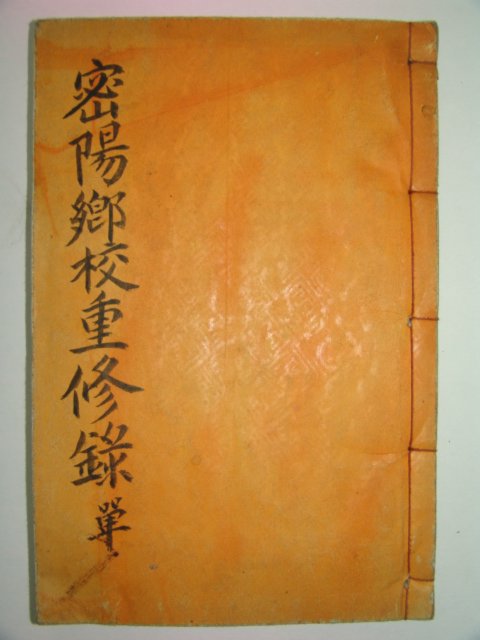 密陽鄕校重修錄 單